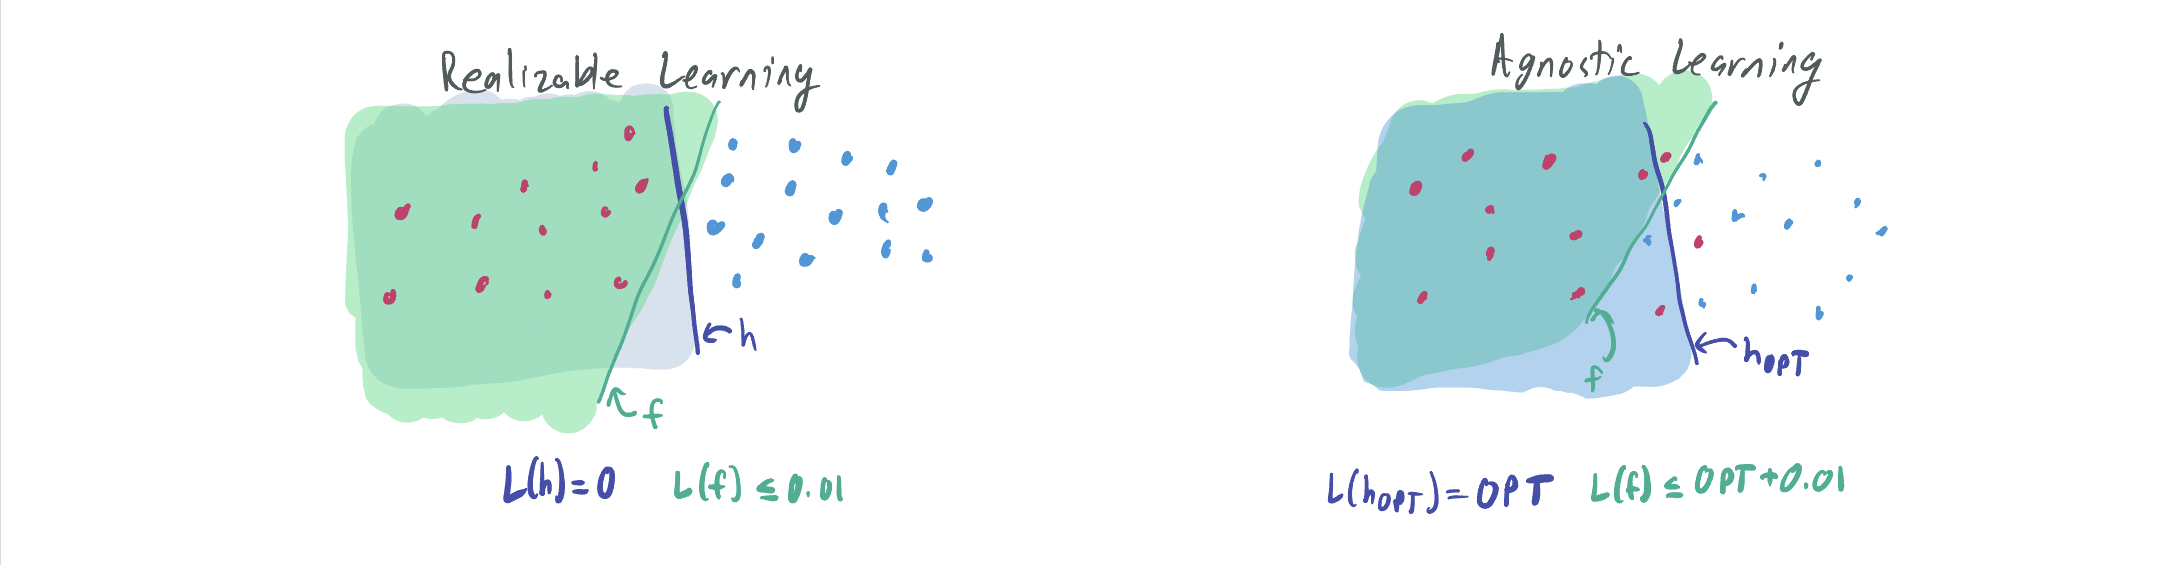 Realizable Learning
h
f
L(h)=0 L(f) ≤ 0.01
Agnostic Learning
h_OPT
f
L(h_OPT)=OPT L(f) ≤ OPT+0.01